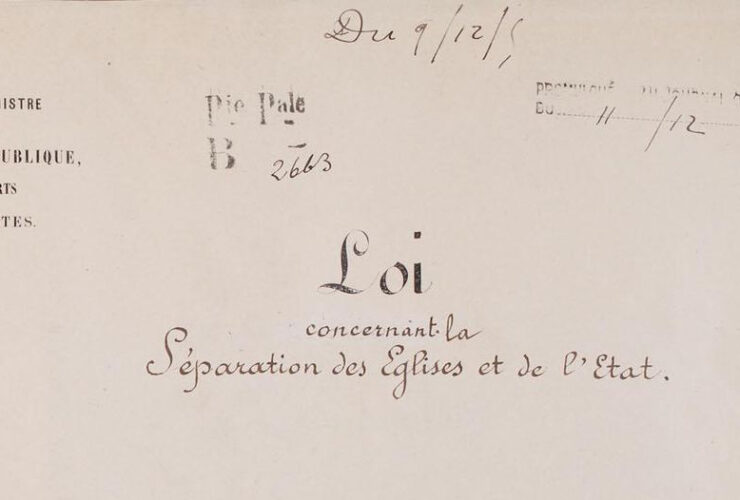 Du 9/12/5
NISTRE
UBLIQUE,
RTS
TES.
Pie Pale
B 2663
PROMULGUÉ AU JOURNAL O
DU 11/12
Loi
concernant la
Séparation des Eglises et de l'Etat.